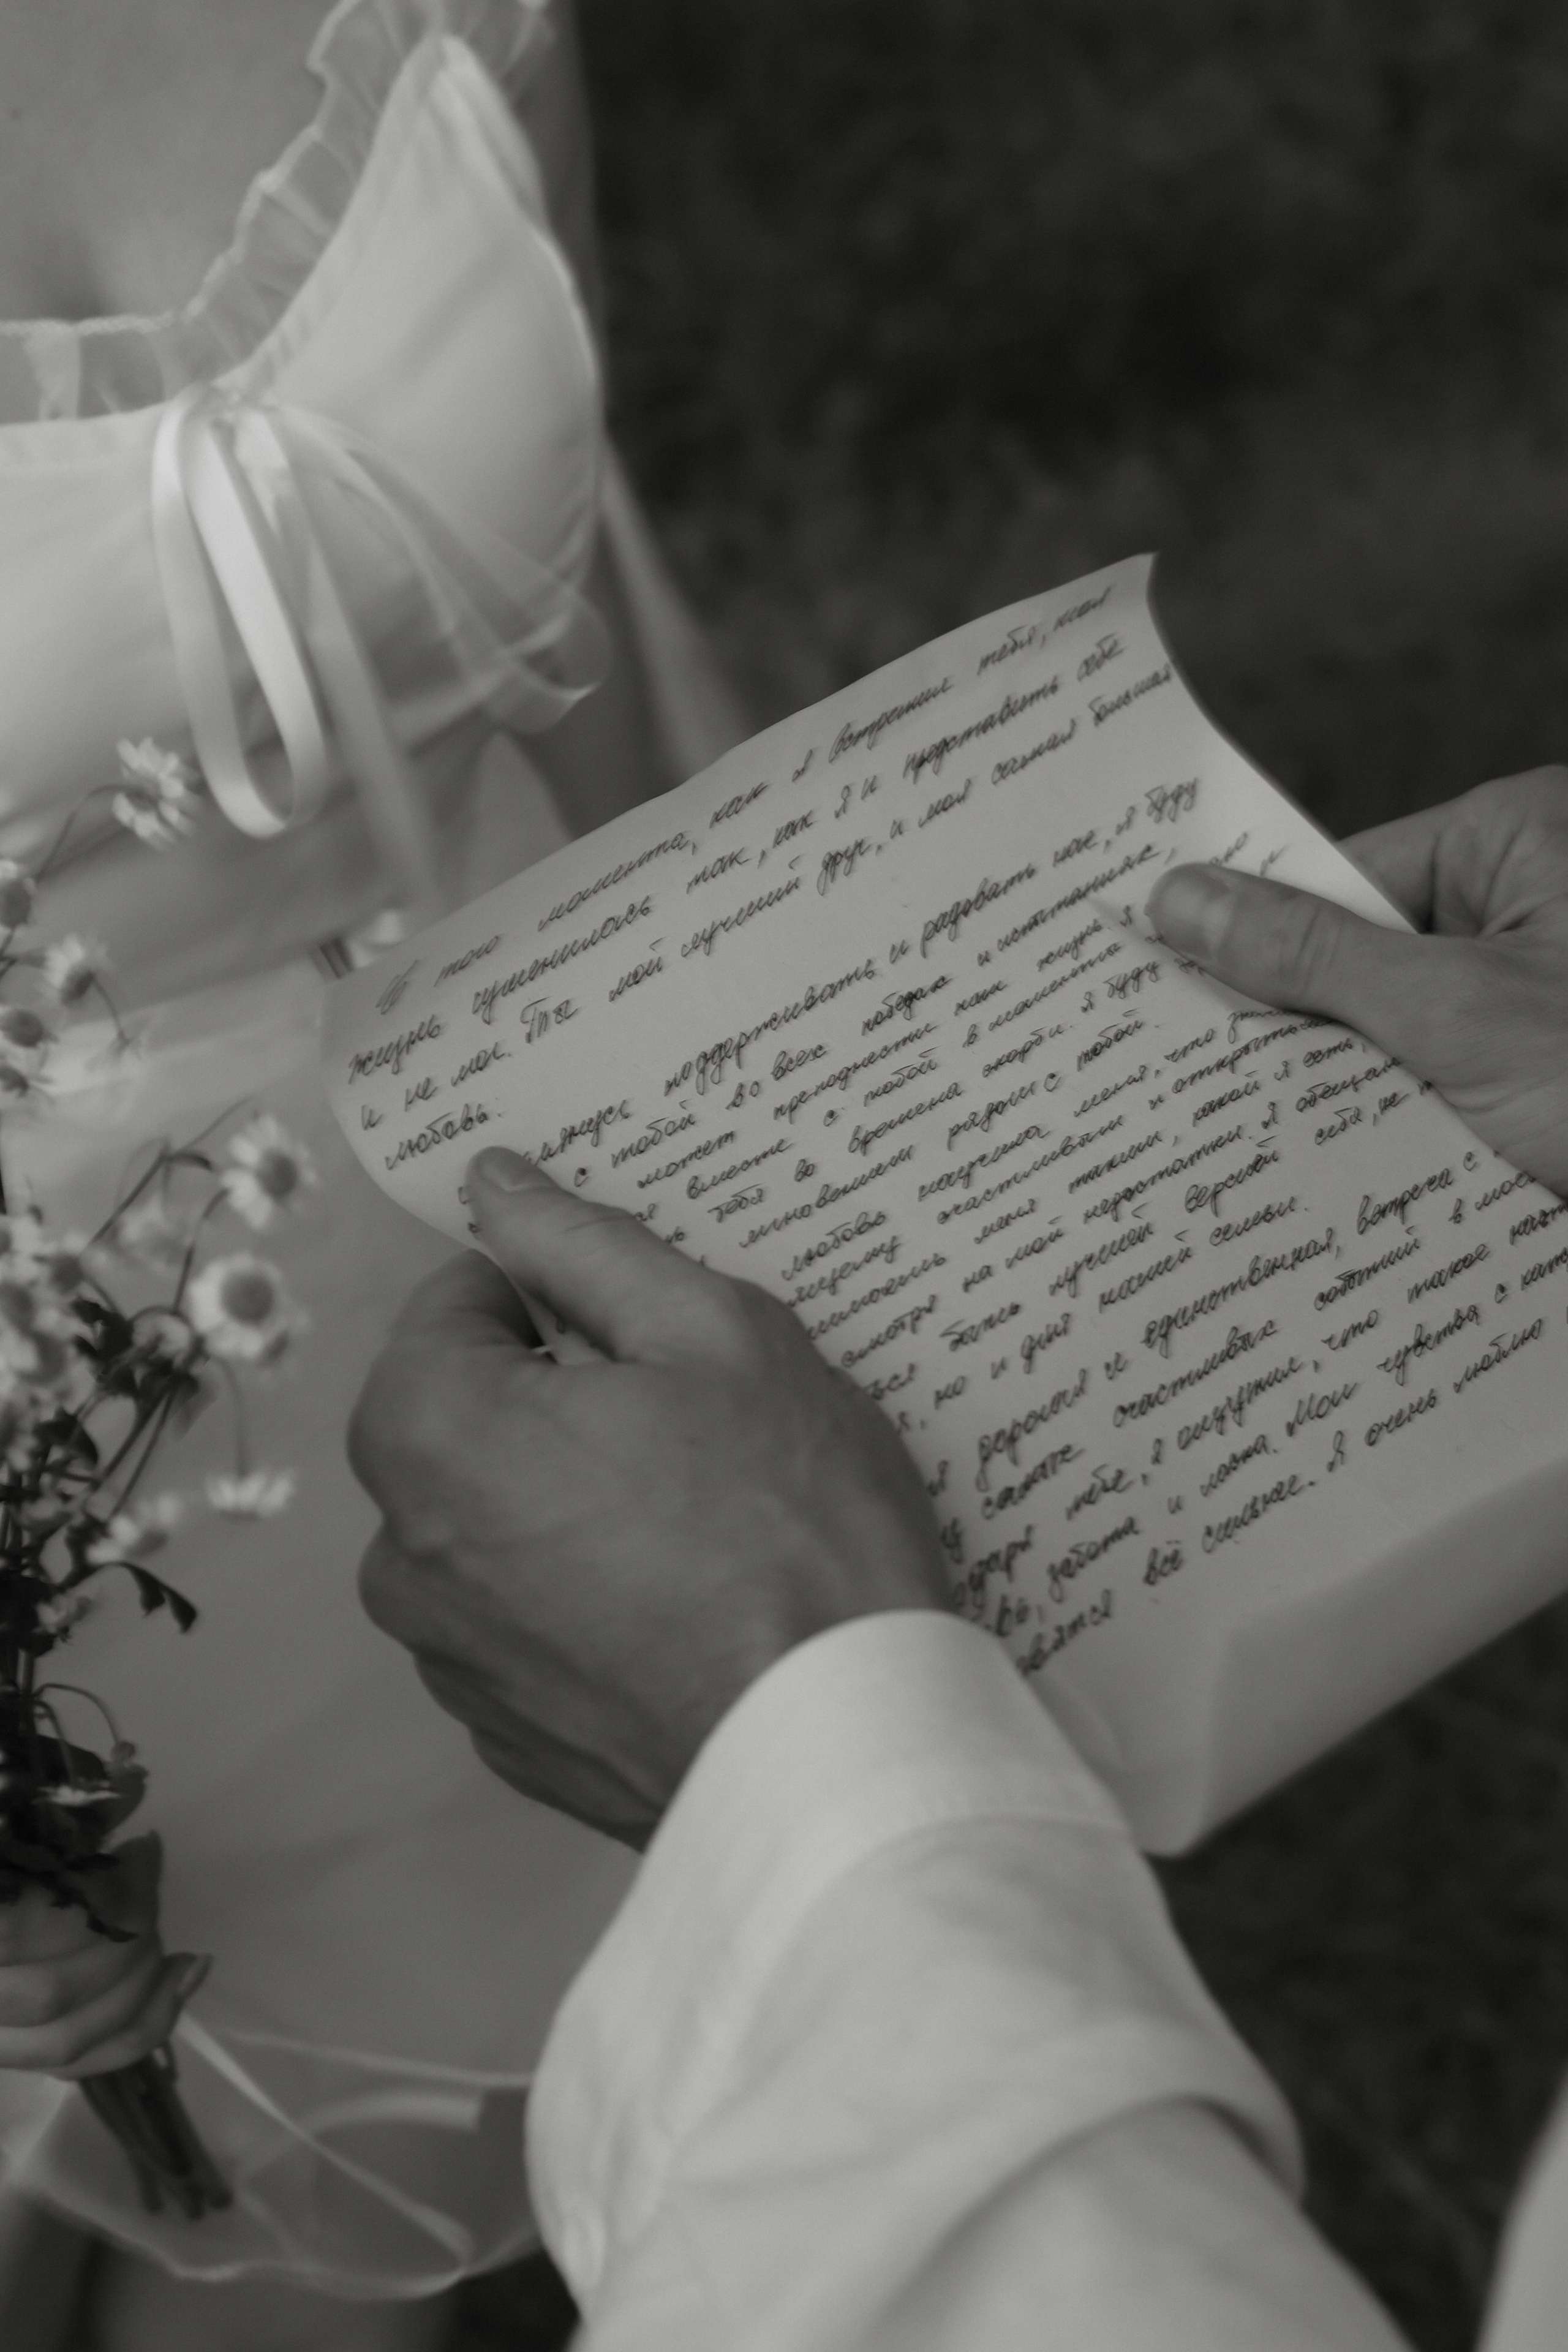 С того момента, как я встретил тебя, моя
жизнь изменилась так, как я и представить себе
и не мог. Ты мой лучший друг, и моя самая большая
любовь.
поддерживать и радовать нас, я буду
с тобой во всех победах и испытаниях,
может преподнести нам жизнь. Я
вместе с тобой в моменты
тебя во времена скорби. Я буду
мгновением рядом с тобой.
любовь научила меня, что
счастливым и открытым
меня таким, какой я есть,
смотря на мои недостатки. Я обещаю
быть лучшей версией себя, не
, но и для нашей семьи.
дорогая и единственная, встреча с
самых счастливых событий в моей
тебе, я ощутил, что такое
, забота и ласка. Мои чувства с
всё сильнее. Я очень люблю